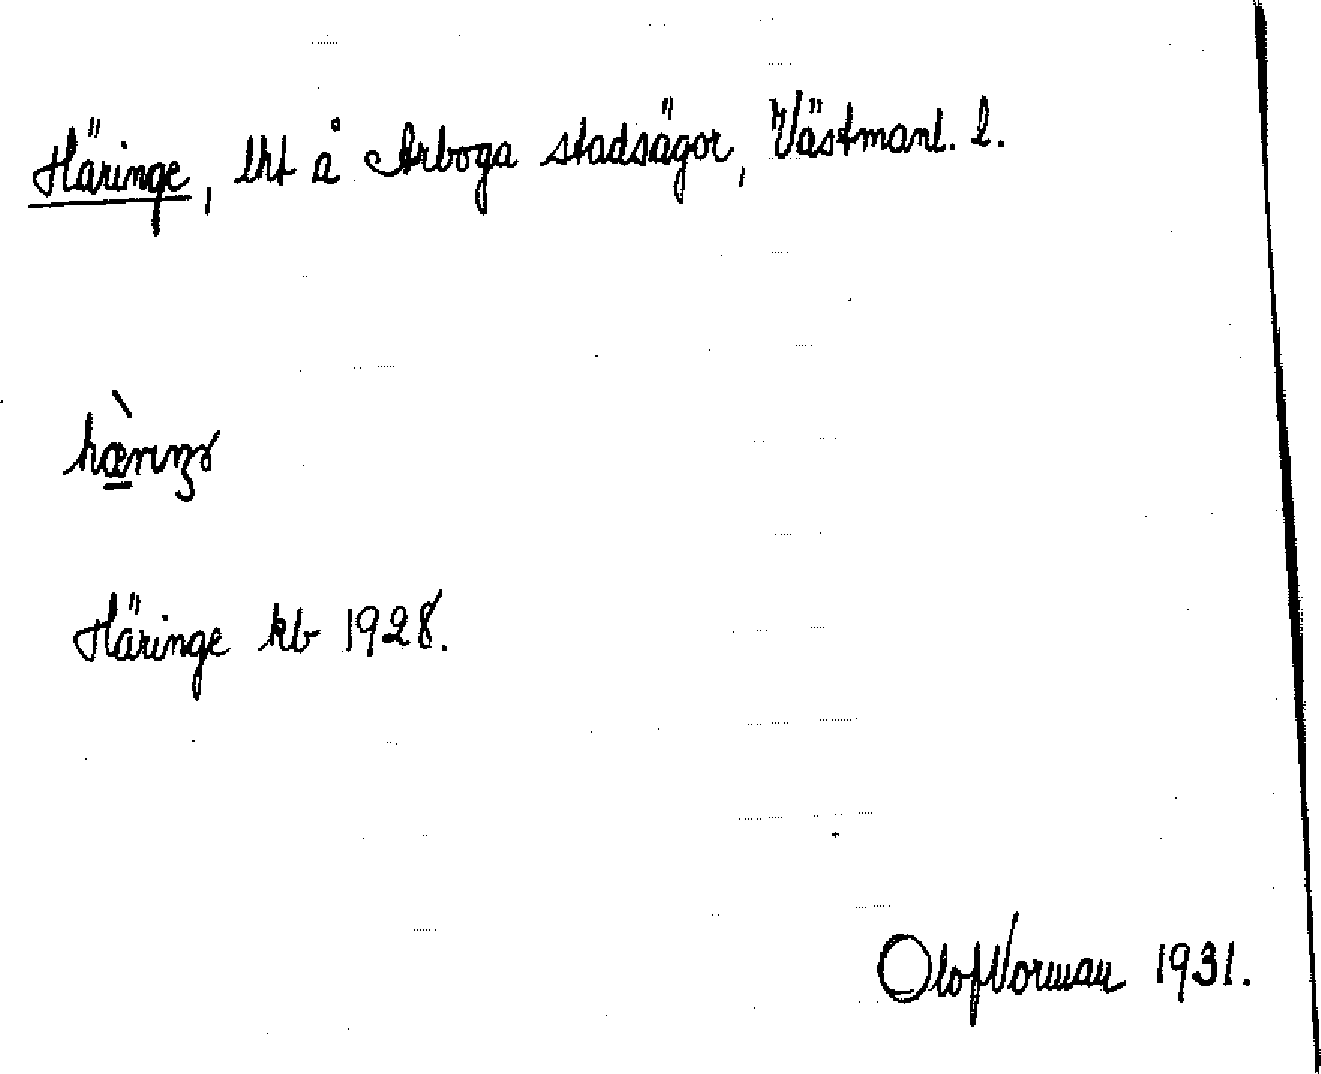 Häringe, lht å Arboga stadsägor, Västmanl. l.
Häringe kb 1928.
Olof Norman 1931.